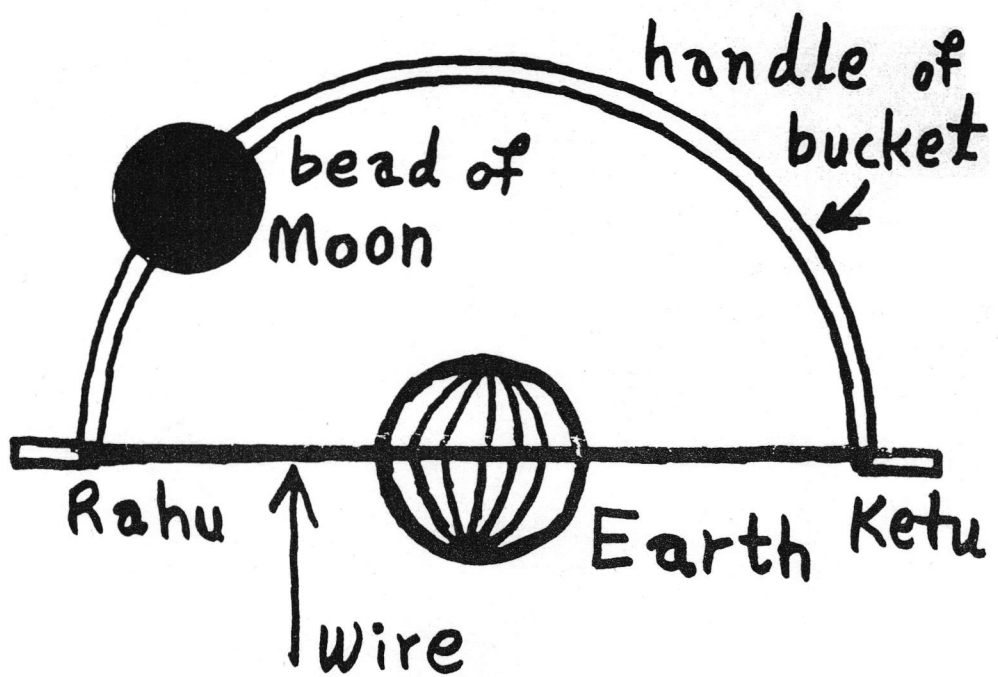 handle of
bucket
bead of
Moon
Rahu
Earth
Ketu
wire